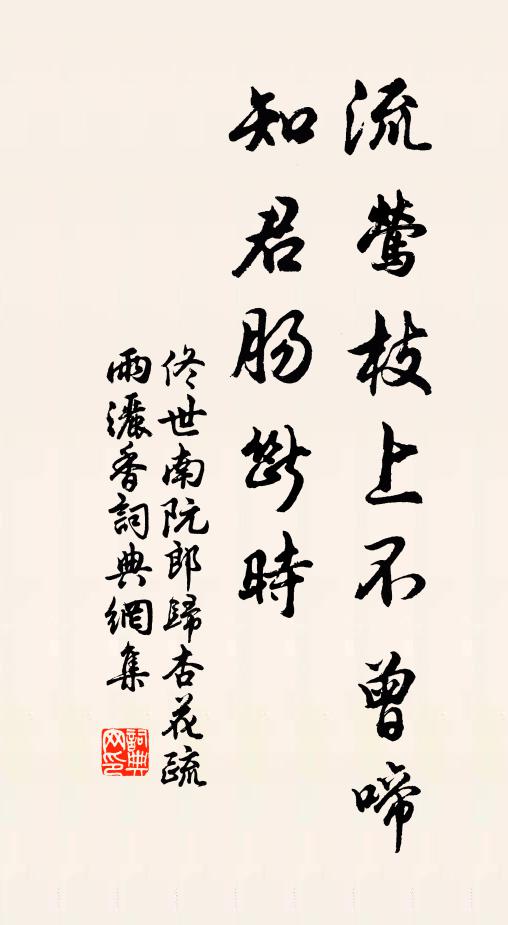 流鶯枝上不曾啼
知君肠斷時
佟世南阮郎歸杏花疏
雨灑香詞典網集
詞典
网印